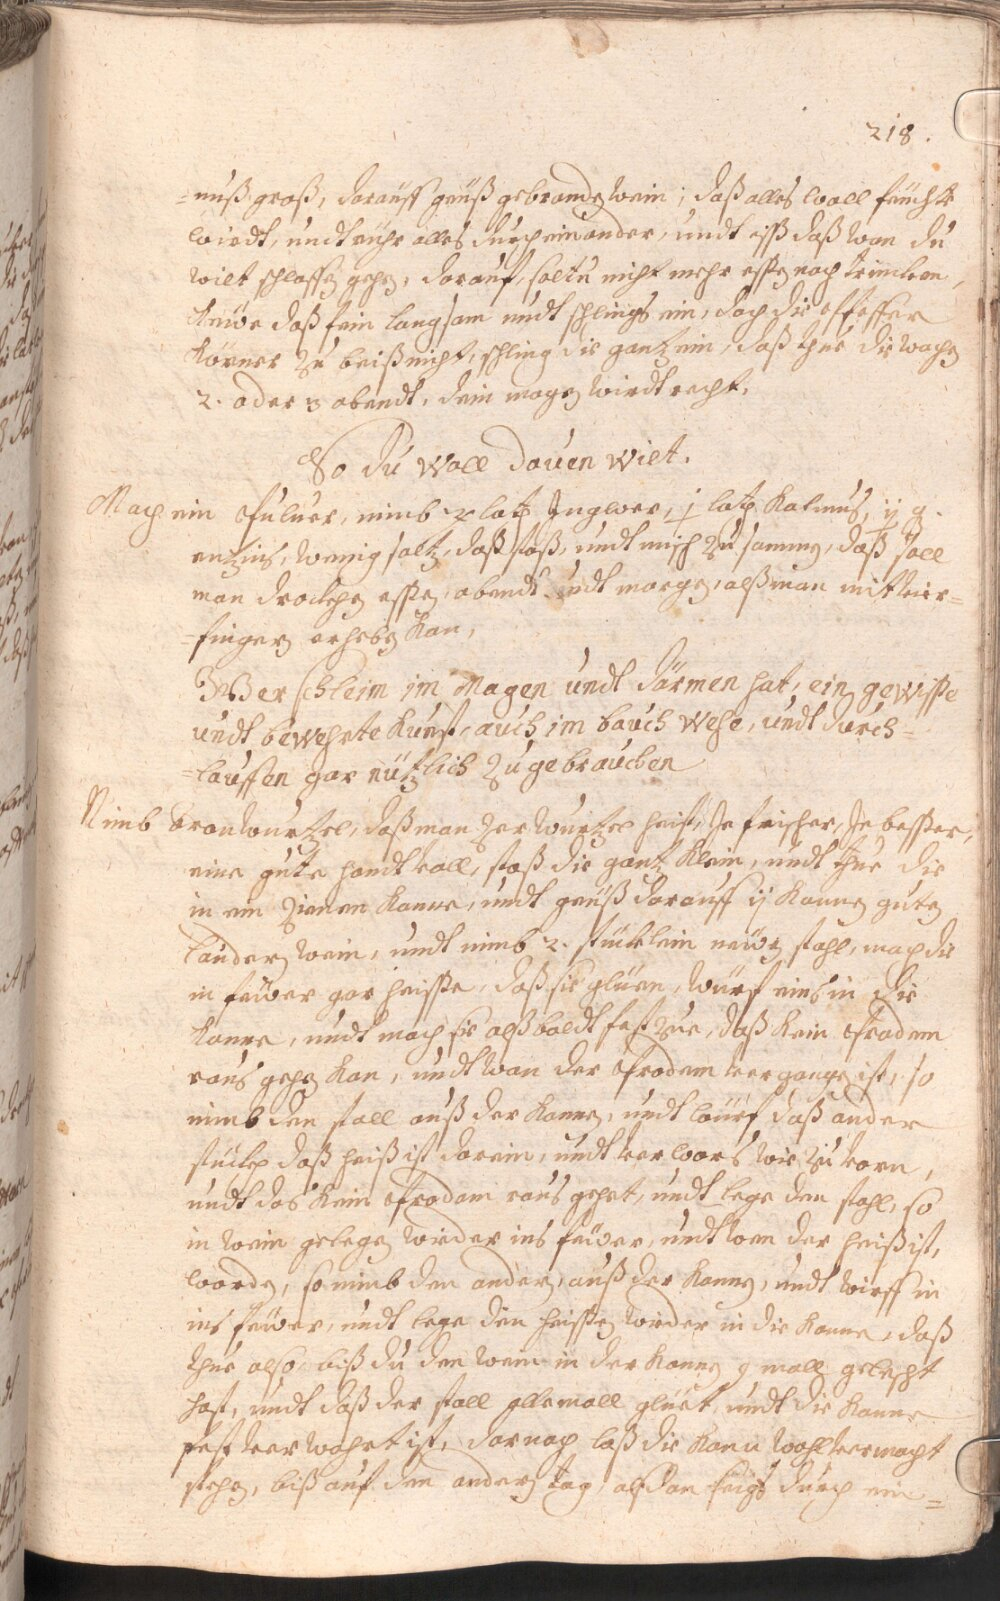 218.
=nuß groß, darauff geuß gebranden wein, daß alles woll feucht
wirdt, undt rühr alles durch einander, undt iß daß wan du
wilt schlaffen gehen, darauf soltu nicht mehr essen noch trincken,
keuwe daß fein langsam undt schlings ein, doch die pfeffer
körner zu beiß nicht, schling die gantz ein, daß thue die wochen
2. oder 3 abendt, dein magen wirdt recht.
So du woll dauen wilt.
Mach ein Puluer, nimb loth Ingwer, j loth Kalmus, ij q.
entzins, wenig saltz, daß stoß, undt misch zu samen, daß soll
man drocken essen, abendt undt morgen, alß man mit vier=
=fingern erheben kan,
Wer schleim im Magen undt därmen hat, ein gewisse
undt bewehrte Kunst, auch im bauch wehe, undt durch=
=lauffen gar nützlich zu gebrauchen
Nimb wurtzel, daß man wurtzel heist, Je frischer, Je besser,
eine gute handt voll, stoß die gantz klein, undt thue die
in ein zienen Kanne, undt geuß darauff ij Kannen guten
lauder wein, undt nimb 2. stücklein neüen stahl, mach die
in feüwer gar heisse, daß sie glüen, würf eins in die
Kanne, undt mach sie alß baldt fest zue, daß kein Brodem
raus gehen kan, undt wan der Brodem vergangen ist, so
nimb den stall auß der Kannen, undt würf daß ander
stück daß heiß ist darein, undt verwars wie zu vorn,
undt das kein Brodam raus gehet, undt lege den stahl, so
in wein gelegen wieder ins feüwer, undt wen der heiß ist,
worden, so nimb den andern auß der Kannen, undt wirff in
ins feüwer, undt lege den heissen wieder in die Kanne, daß
thue also, biß du den wein in der Kannen 9 mall gelescht
hast, undt daß der stall allemall glüet, undt die Kanne
fest verwahrt ist, darnach laß die Kann wohl vermacht
stehen, biß auf den andern tag, alßdan seigs durch ein=